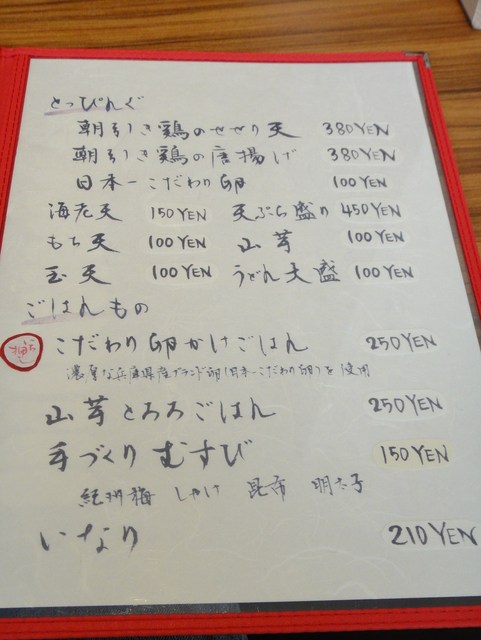 とっぴんぐ
朝引き鶏のせせり天 380YEN
朝引き鶏の唐揚げ 380YEN
日本一こだわり卵 100YEN
海老天 150YEN 天ぷら盛り 450YEN
もち天 100YEN 山芋 100YEN
玉天 100YEN うどん大盛 100YEN
ごはんもの
こだわり卵かけごはん 250YEN
濃厚な兵庫県産ブランド卵(日本一こだわり卵)を使用
山芋とろろごはん 250YEN
手づくりむすび 150YEN
紀州梅 しゃけ 昆布 明太子
いなり 210YEN